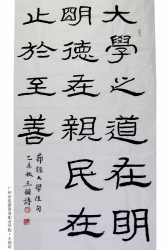 大學之道在明
明德在親民在
止於至善
節錄大學佳句
乙未秋王韻詩